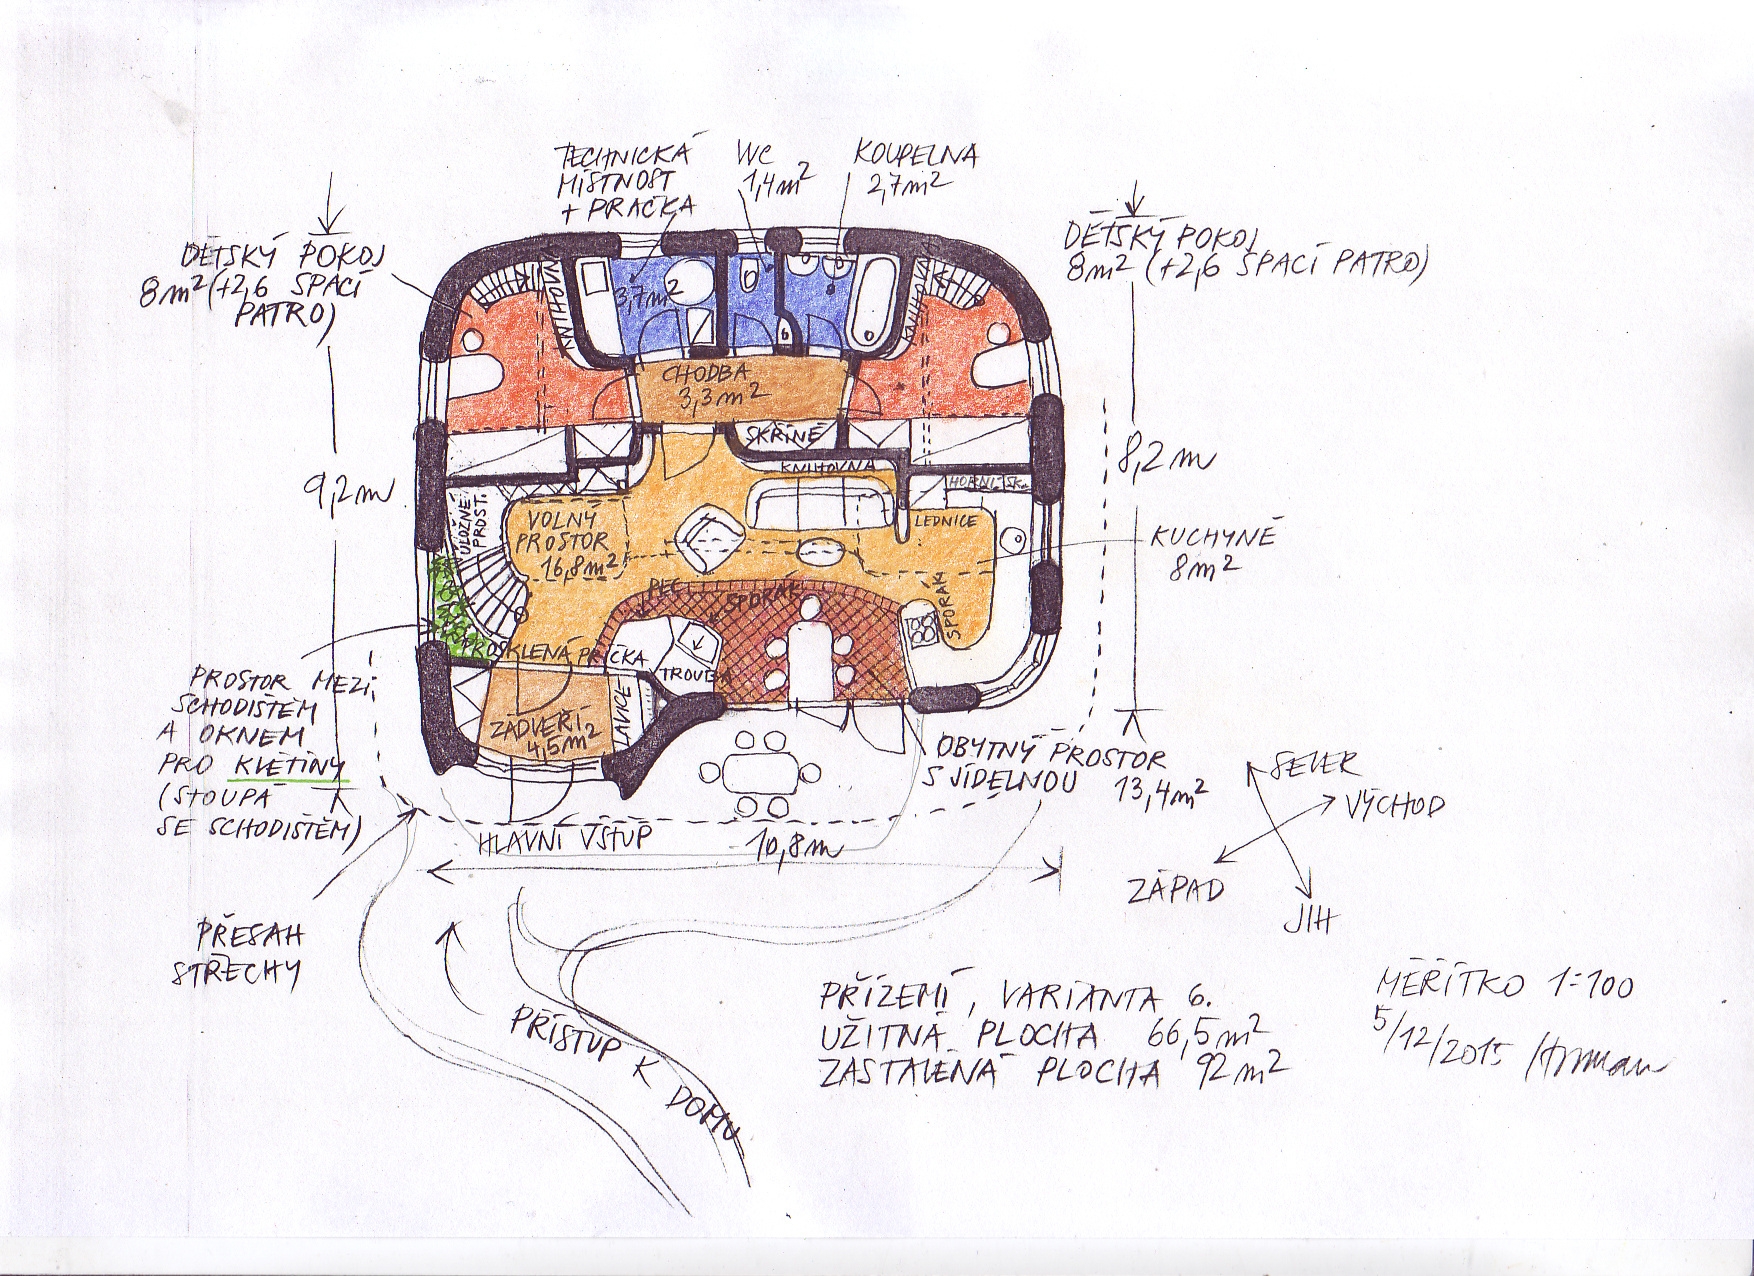 TECHNICKÁ
MÍSTNOST
+ PRAČKA
WC
1,4m²
KOUPELNA
2,7m²
DĚTSKÝ POKOJ
8m² (+2,6 SPACÍ
PATRO)
DĚTSKÝ POKOJ
8m² (+2,6 SPACÍ PATRO)
3,7m²
KNIHOVNA
CHODBA
3,3m²
SKŘÍNĚ
KNIHOVNA
9,2m
8,2m
ÚLOŽNÉ
PROST.
VOLNÝ
PROSTOR
16,8m²
LEDNICE
KUCHYNĚ
8m²
PEC
SPORÁK
SPORÁK
PROSKLENÁ PŘÍČKA
TROUBA
LAVICE
ZÁDVEŘÍ
4,5m²
PROSTOR MEZI
SCHODIŠTĚM
A OKNEM
PRO KVĚTINY
(STOUPÁ
SE SCHODIŠTĚM)
OBYTNÝ PROSTOR
S JÍDELNOU 13,4m²
SEVER
VÝCHOD
ZÁPAD
JIH
HLAVNÍ VSTUP
10,8m
PŘESAH
STŘECHY
PŘÍSTUP K DOMU
PŘÍZEMÍ, VARIANTA 6.
UŽITNÁ PLOCHA 66,5m²
ZASTAVĚNÁ PLOCHA 92m²
MĚŘÍTKO 1:100
5/12/2015